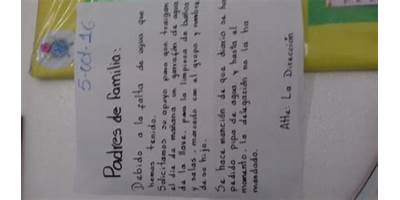 5-oct-16
Padres de familia:
Debido a la falta de agua que
hemos tenido.
Solicitamos su apoyo para que traigan
el dia de mañana un garrafón de agua
de la llave, para la limpieza de baños
y salas, marcado con el grupo y nombre
de su hijo.
Se hace mención de que diario se ha
pedido pipa de agua y hasta el
momento la delegación no la ha
mandado.
Atte: La Dirección